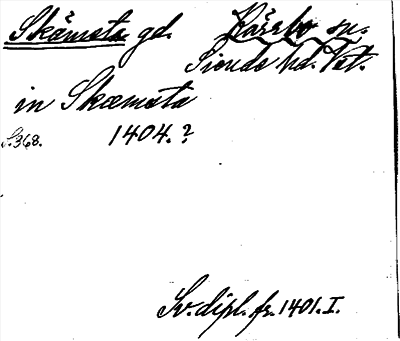 Skämsta gd. Kärrbo sn.
Siende hd. Vst.
in Skæmsta
S. 368. 1404. ?
Sv. dipl. fr. 1401. I.